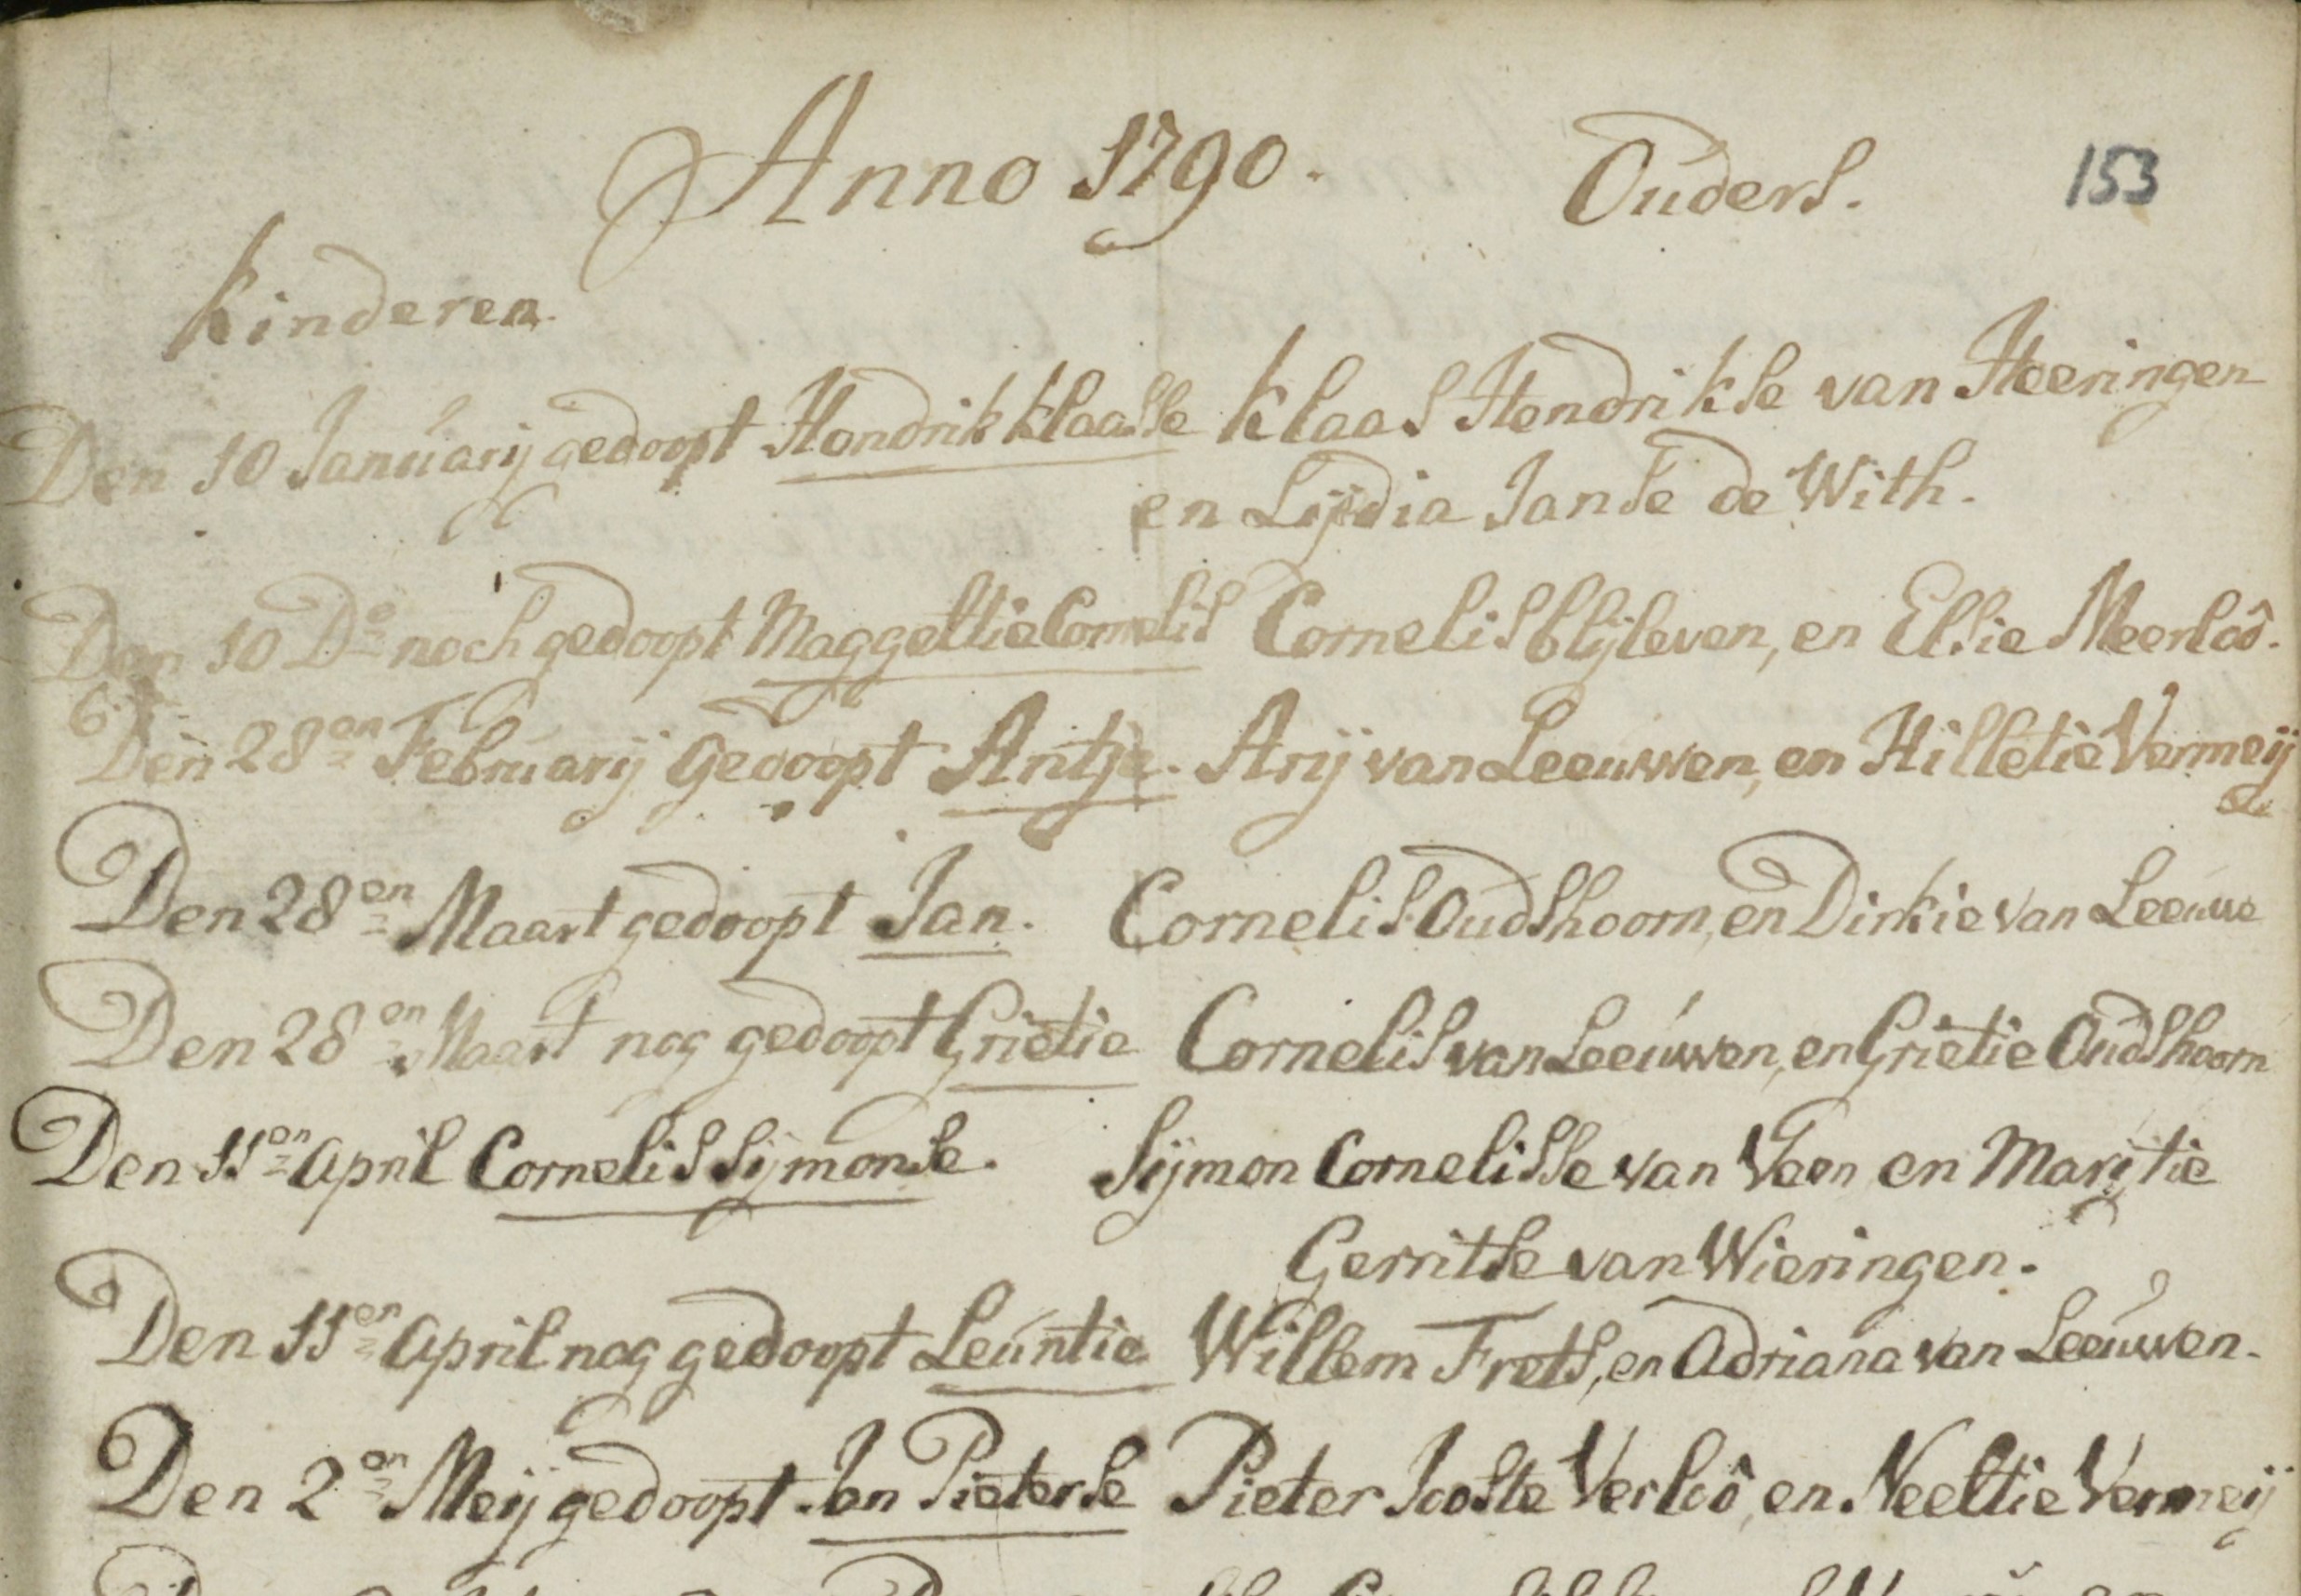 Anno 1790. Ouders. 153
Kinderen
Den 10 Januarij gedoopt Hendrik Klaasse Klaas Hendrikse van Heeringen
en Lijdia Janse de With.
Den 10 Do noch gedoopt Maggeltie Cornelis Cornelis blijleven, en Elsie Meerloô.
Den 28en Februarij gedoopt Antje. Arij van Leeuwen, en Hilletie Vermeij
Den 28en Maart gedoopt Jan. Cornelis Oudshoorn, en Dirkie van Leeuwe
Den 28en Maart nog gedoopt Grietie Cornelis van Leeuwen, en Grietie Oudshoorn
Den 11en April Cornelis Sijmonse. Sijmon Cornelisse van Veen en Marijtie
Gerritse van Wieringen.
Den 11en April nog gedoopt Leuntie Willem Frets, en Adriana van Leeuwen.
Den 2en Meij gedoopt Jan Pieterse Pieter Jooste Verloô, en Neeltie Vermeij